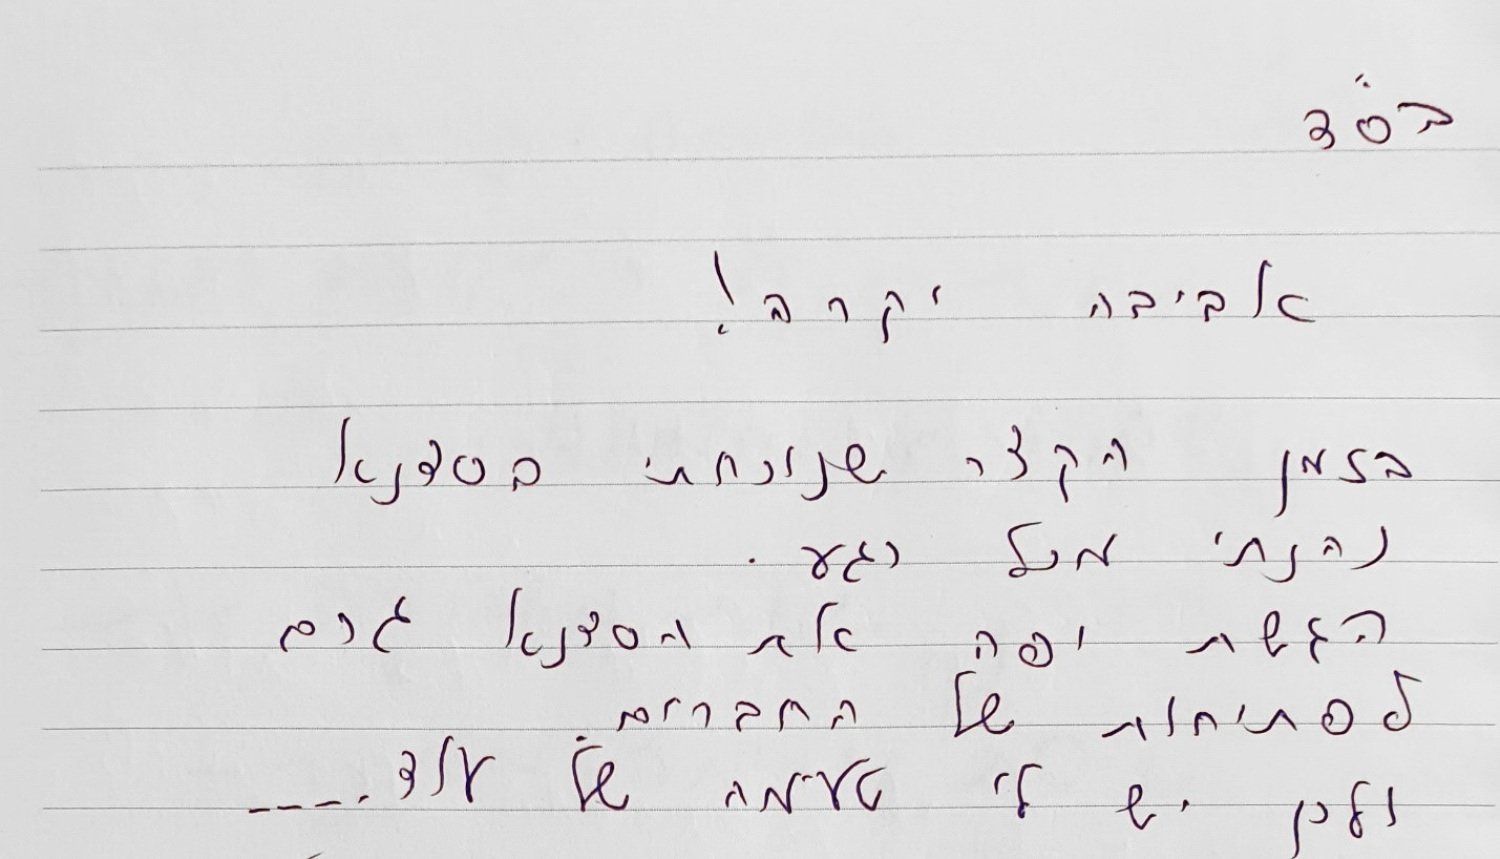 בס"ד
אביבה יקרה!
בזמן הקצר שנוכחתי בסדנא
נהנתי מכל רגע.
הגשת יפה את הסדנא גרם
לפתיחות של החברים.
ולכן יש לי טעימה של עוד.----